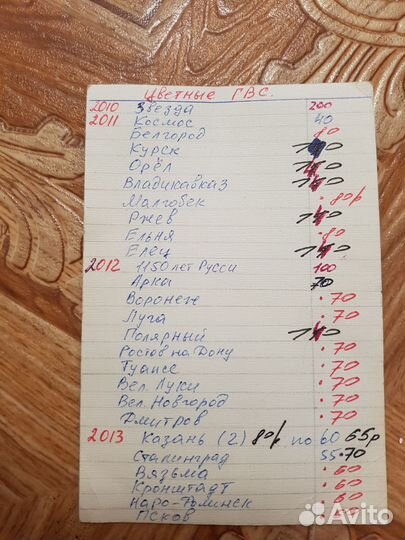 Цветные ГВС.
2010 Звезда 200
2011 Космос 40
Белгород 80
Курск
Орёл
Владикавказ
Малгобек 80р
Ржев
Ельня 80
Елец
2012 1150 лет Русси 100
Арка 70
Воронеж 70
Луга 70
Полярный
Ростов на Дону 70
Туапсе 70
Вел. Луки 70
Вел. Новгород 70
Дмитров 70
2013 Казань (2) 80р по 60 65р
Сталинград 55 70
Вязьма 60
Кронштадт 60
Наро-Фоминск 60
Псков 60
Avito